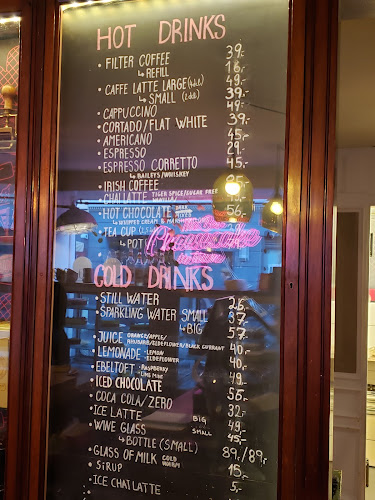 HOT DRINKS
• FILTER COFFEE 39,-
↳ REFILL 16,-
• CAFFE LATTE LARGE 49,-
↳ SMALL 39,-
• CAPPUCCINO 49,-
• CORTADO/FLAT WHITE 39,-
• AMERICANO 45,-
• ESPRESSO 29,-
• ESPRESSO CORRETTO 45,-
↳ BAILEYS/WHISKEY
• IRISH COFFEE
• CHAI LATTE TIGER SPICE/SUGAR FREE
VANILLA
• HOT CHOCOLATE DARK 56,-
↳ WHIPPED CREAM & MARSHMALLOW
• TEA CUP
↳ POT
The
Pancake
COLD DRINKS
• STILL WATER
• SPARKLING WATER SMALL 37,-
↳ BIG 57,-
• JUICE ORANGE/APPLE/
RHUBARB/ELDERFLOWER/BLACK CURRANT 40,-
• LEMONADE - LEMON 40,-
- ELDERFLOWER
• EBELTOFT - RASPBERRY 40,-
- LIME MINT
• ICED CHOCOLATE 49,-
• COCA COLA/ZERO
• ICE LATTE BIG
• WINE GLASS SMALL 49,-
↳ BOTTLE (SMALL) 45,-
• GLASS OF MILK COLD 89,-/89,-
• SIRUP 15,-
• ICE CHAI LATTE 5,-